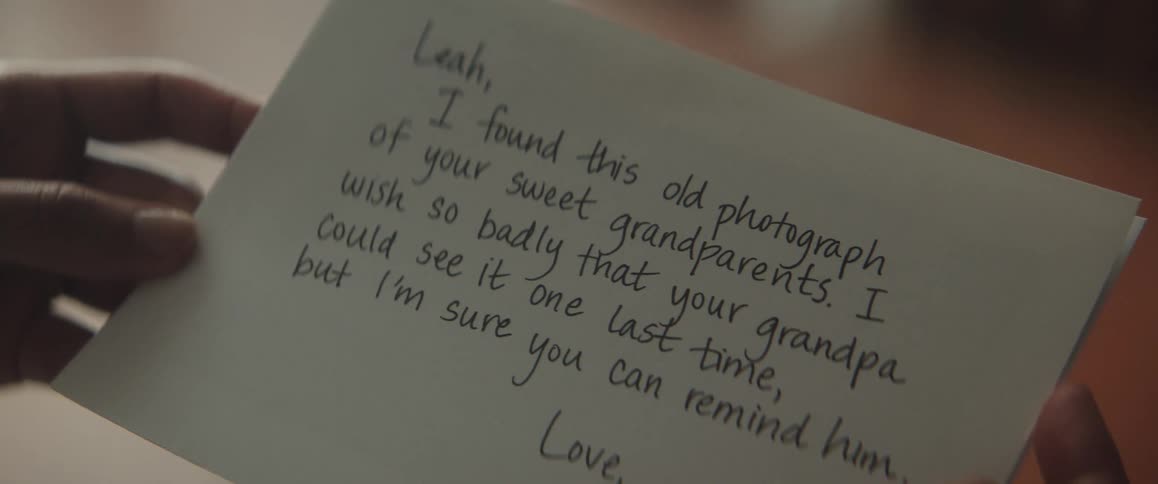 Leah,
I found this old photograph
of your sweet grandparents. I
wish so badly that your grandpa
could see it one last time,
but I'm sure you can remind him.
Love,